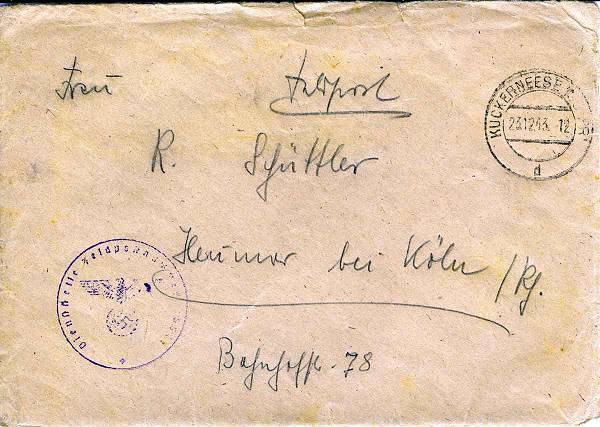 Frau Feldpost
R. Schüttler
bei Köln /Rh.
Bahnhofstr. 78
KUCKERNEESE
23.12.43.-12
d
Dienststelle Feldpostnummer